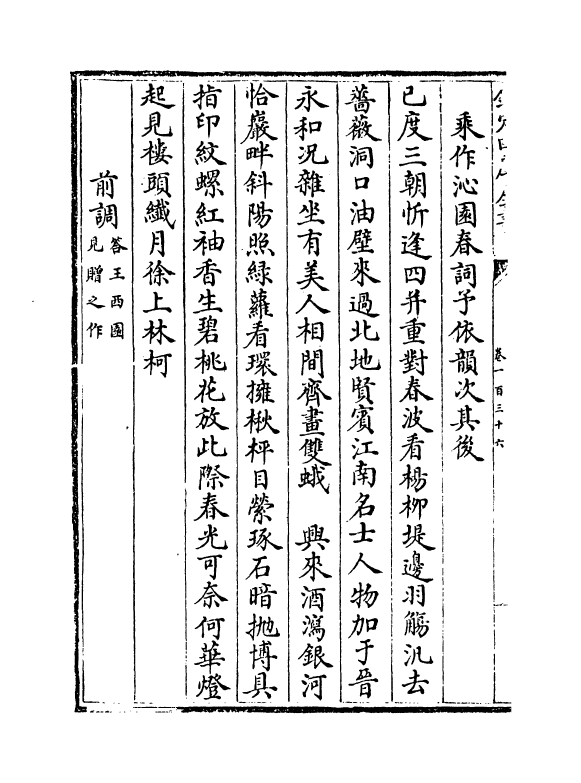 卷一百三十六
乘作沁園春詞予依韻次其後
已度三朝忻逢四并重對春波看楊柳堤邊羽觴汎去
薔薇洞口油壁來過北地賢賓江南名士人物加于晉
永和况雜坐有美人相間齊畫雙蛾　興來酒瀉銀河
恰巖畔斜陽照綠蘿看環擁楸枰目縈琢石暗抛博具
指印紋螺紅袖香生碧桃花放此際春光可奈何華燈
起見樓頭纖月徐上林柯
前調答王西園見贈之作